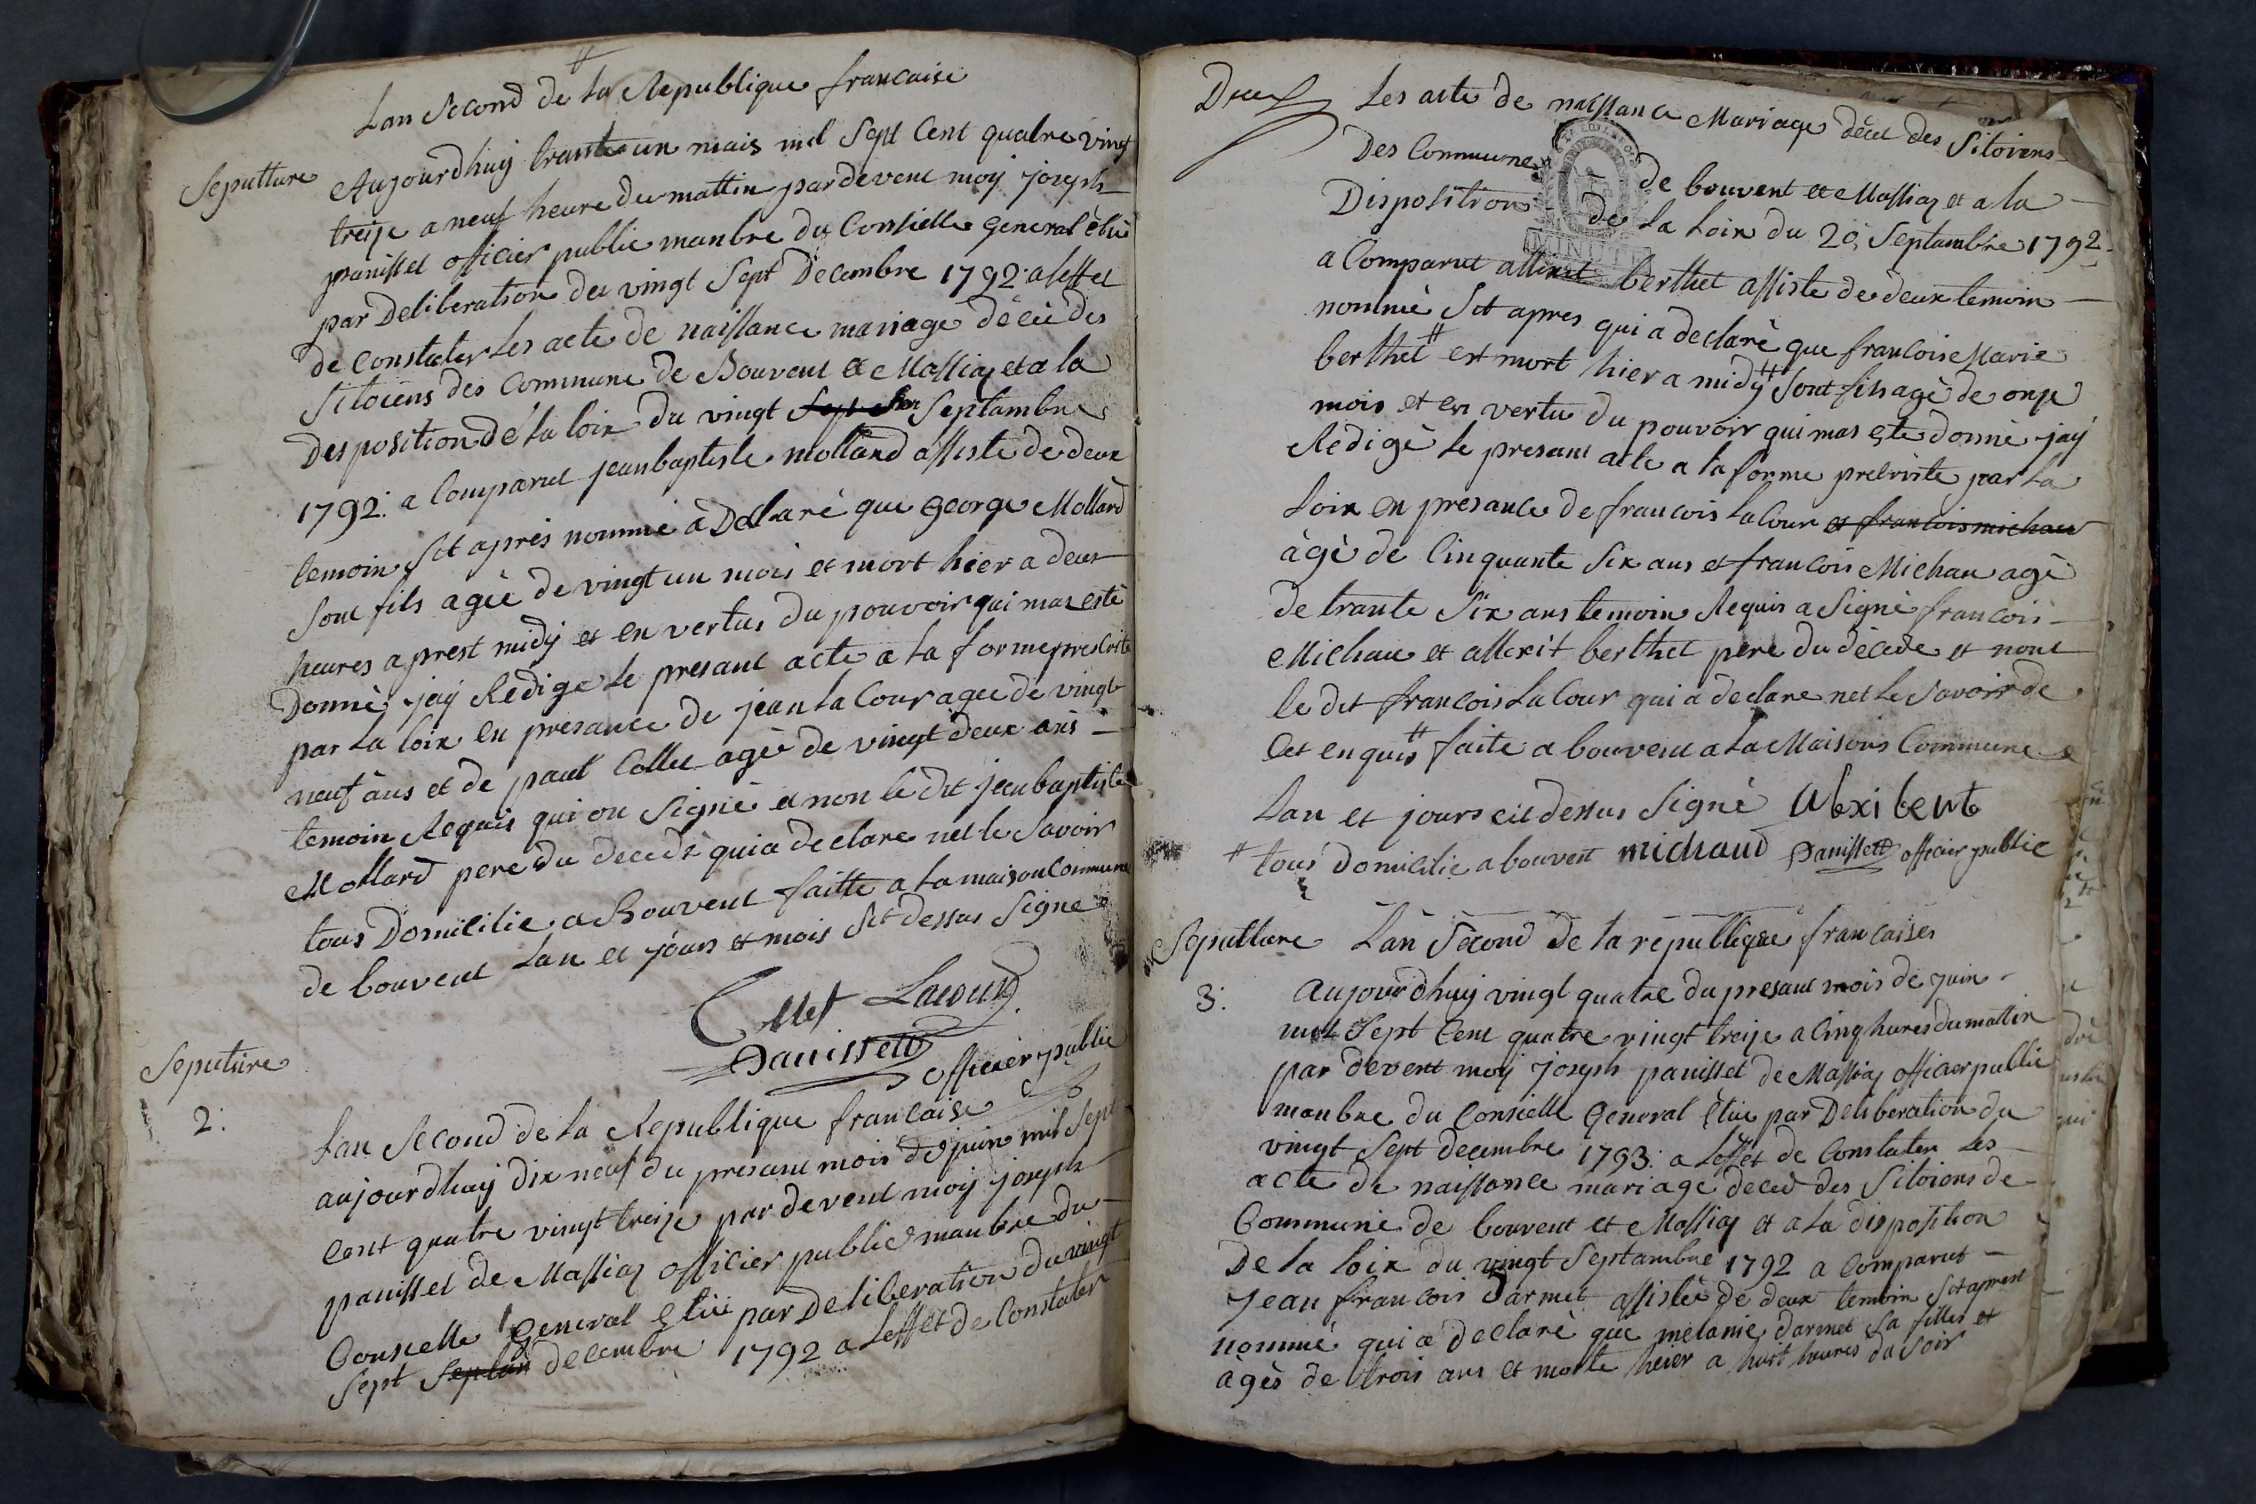 Lan second de la Republique francaise
Sepulture
Aujourdhuy trante un mais mil sept Cent quatre vingt
treize a neuf heure du mattin par devent moy joseph
panisset officier public manbre du Consielle General élué
par Deliberation du vingt Sept Decembre 1792 a leffet
de Constater les acte de naissance mariage décé des
Sitoiens des Commune de Bouvent et Massiaz et a la
Desposition de la loix du vingt Septambre
1792. a Comparut jeanbaptiste mollard assiste de deux
temoin Sit après nommé a Declaré que George Mollard
sont fils agée de vingt un mois et mort hier a deux
heures aprest midy et en vertus du pouvoir qui mas esté
Donné jay Rédige le presant acte a la forme prescrite
par la loix en presance de jean la Cour agee de vingt
neuf ans et de paul Collet agé de vingt deux ans
temoin Requis qui on Signé et non le dit jeanbaptiste
Mollard pere du decedé qui a declare net le savoir
tous Domicilie a Bouvent faitte a la maison Commune
de bouvent Lan et jours et mois Sit dessus Signe
Collet Lacour
Panissett officier public
Seputure
2.
Lan Second de la Republique francaise
aujourdhuy dix neuf du presant mois de juin mil Sept
Cent quatre vingt treize par devent moy joseph
panisset de Massiaz officier public manbre du
Consielle General élué par Deliberation du vingt
Sept Septan decembre 1792 a Leffet de Constater
Deux
Les acte de naissance Mariage décé des Sitoiens
Des Commune de bouvent et Massiaz et a la
Disposition de la Loix du 20 Septambre 1792
MINUTE
a Comparut allexit berthet assiste de deux temoin
nommé Sit apres qui a declaré que francoise Marie
berthet # est mort hier a midy # sont fils agé de onze
mois et en vertu du pouvoir qui mas esté donné jay
Redigé le presant acte a la forme prescrite par la
Loix en presance de francois la Cour et francois michau
àgé de Cinquante Six ans et francois Michau agé
de trante Six ans temoin Requis a Signé francois
Michau et allexit berthet pere du décede et nont
le dit francois la Cour qui a declare net le savoir de
Cet enquis # faite a bouvent a la Maisons Commune
Lan et jours cit dessus Signé Alexi bert
# tous domicilie a bouvent michaud Panissett officier public
Sepulture
Làn Second de la république francaises
3.
aujourdhuy vingt quatre du presant mois de juin
mil Sept Cent quatre vingt treize a Cinq hures du mattin
par devent moy joseph panisset de Massiaz officier public
manbre du Consielle General élue par Deliberation du
vingt Sept decembre 1793. a leffet de Constater Les
acte de naissance mariage deced des Sitoions de
Commune de bouvent et Massiaz et a la disposition
De la loix du vingt Septambre 1792 a Comparut
Jean francois Darmet assistée de deux temoin Sit aprest
nommé qui a declaré que melanie darmet la filles et
àgés de trois ans et morte heier a huit heures du soir